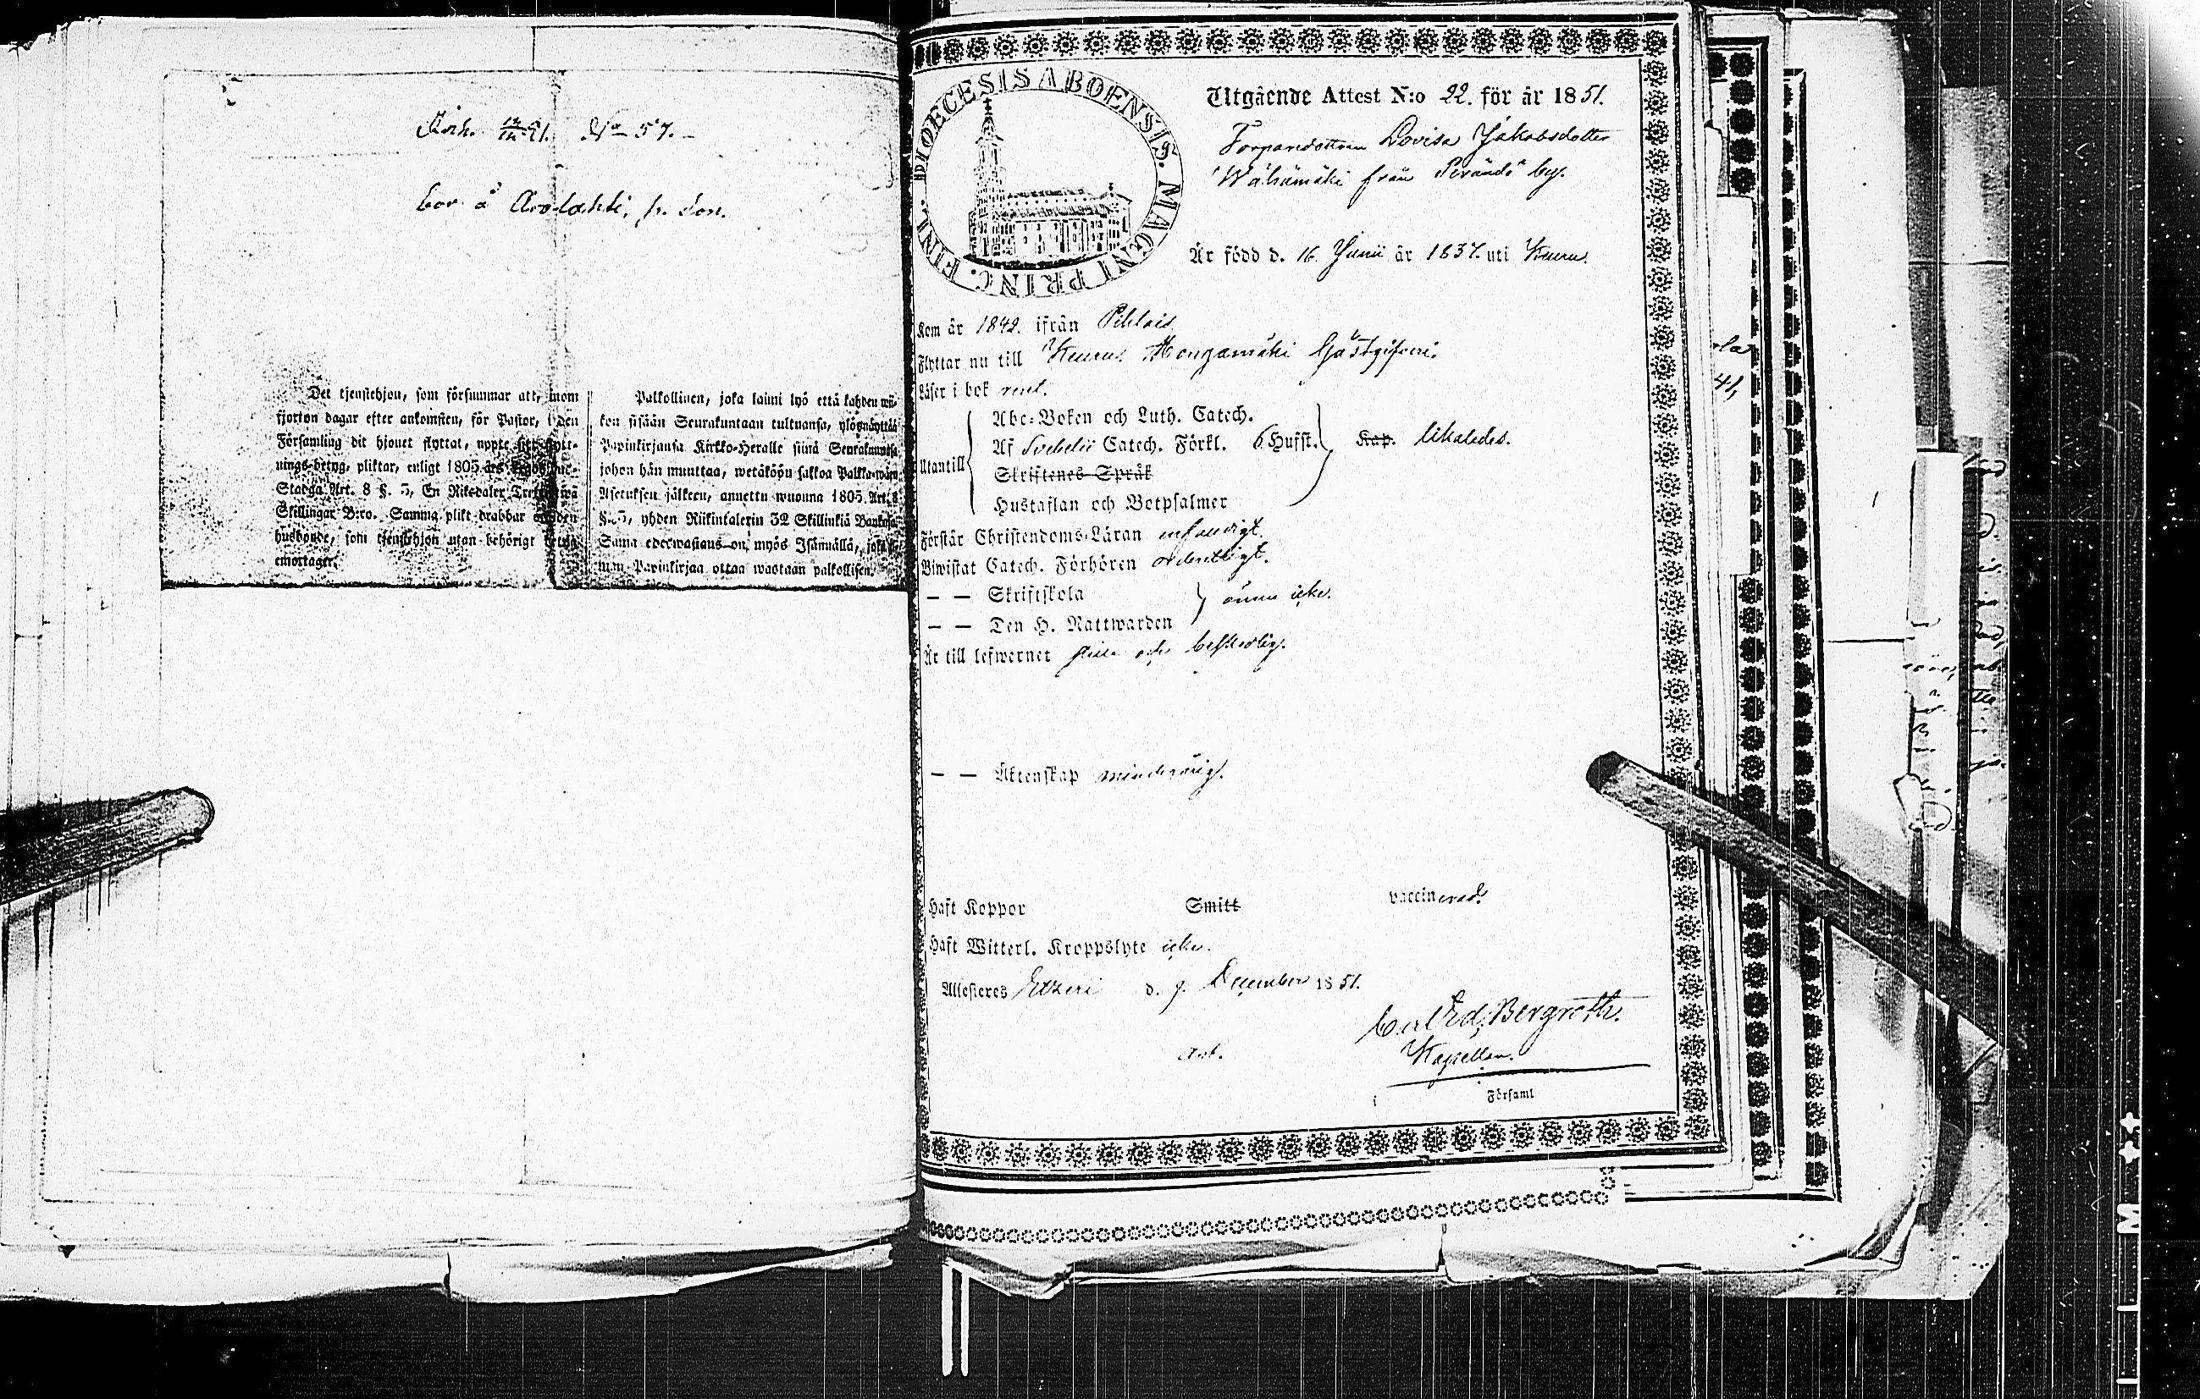 No 57.
bor å
Det tjenstehjon, som försummar att, inom
fjorton dagar efter ankomsten, för Pastor, i den
Församling dit hjonet flyttat, uppte sitt flytt-
nings-betyg, pliktar, enligt 1805 års
Stadga Art. 8 §. 5, En Riksdaler
Skillingar B:co. Samma plikt drabbar
husbonde, som tjenstehjon utan behörigt
emottager.
Palkollinen, joka laimi lyö että kahden wii-
kon sisään Seurakuntaan tultuansa, ylösnäyttää
Papinkirjansa Kirkko-Heralle siinä Seurakunnassa
johon hän muuttaa, wetäköön sakkoa Palkkawäen
Asetuksen jälkeen, annettu wuonna 1805. Art. 8
§. 5, yhden Riikintalerin 32 Skillinkiä Bankossa
Sama edeswastaus on myös Isännällä,
Papinkirjaa ottaa wastaan palkollisen.
DIOECESIS ABOENSIS. MAGNI PRINC. FINL.
Utgående Attest N:o 22. för år 1851.
Lovisa Jakobsdotter
Wähämäki från by.
Är född d. 16 Junii år 1837. uti Keuru.
Kom år 1842. ifrån Pihlais.
Flyttar nu till Keuru Gästgifveri.
Läser i bok rent.
Utantill
Abc-Boken och Luth. Catech.
Af Svebelii Catech. Förkl. 6 Hufst. Kap. likaledes.
Skriftenes Språk
Hustaflan och Botpsalmer
Förstår Christendoms-Läran enfaldigt.
Biwistat Catech. Förhören ordentligt.
— — Skriftskola
ännu icke.
— — Den H. Nattwarden
Är till lefwernet stilla och beskedlig.
— — Äktenskap minderårig.
Haft Koppor Smitt vaccinerad.
Haft Witterl. Kroppslyte icke.
Attesteres Etzeri d. 9. December 1851.
Carl Ed. Bergroth.
Kapellan.
i Församl